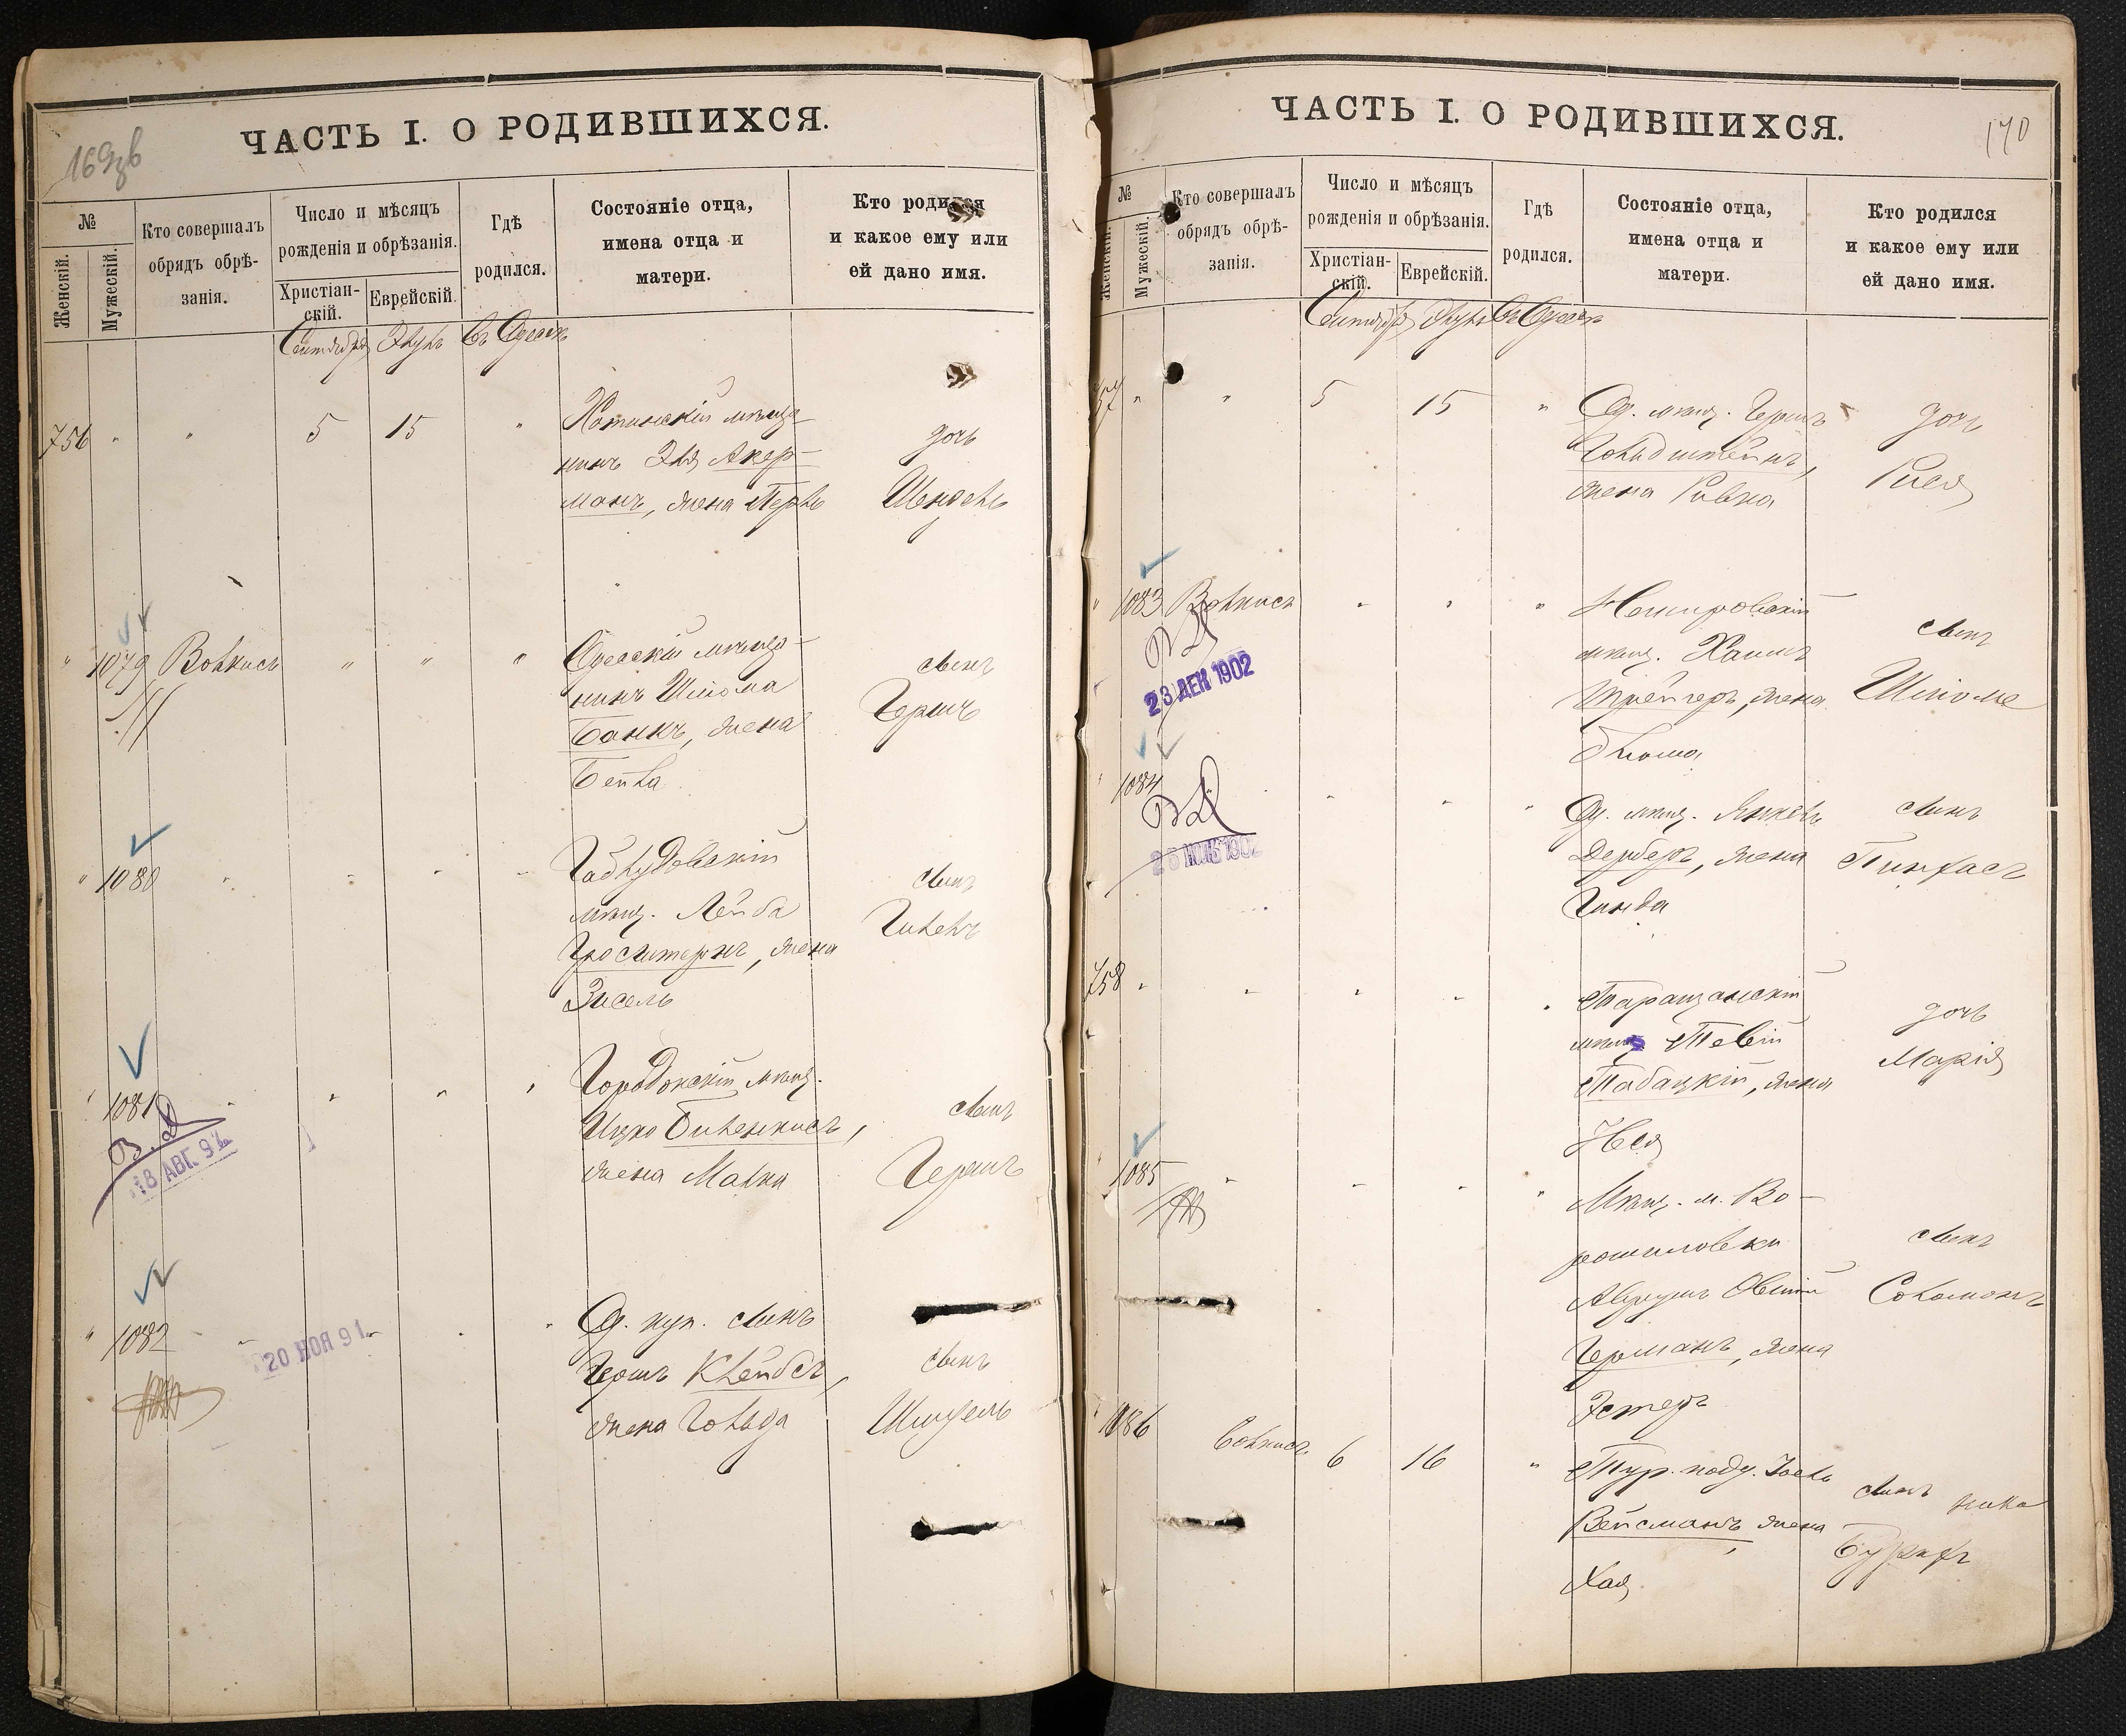 169об
ЧАСТЬ I. О РОДИВШИХСЯ.
№
Женскій.
Мужескій.
Кто совершалъ
обрядъ обрѣ-
занія.
Число и мѣсяцъ
рожденія и обрѣзанія.
Христіан-
скій.
Еврейскій.
Гдѣ
родился.
Состояніе отца,
имена отца и
матери.
Кто родился
и какое ему или
ей дано имя.
Сентябрь Элулъ Въ Одессѣ
756 " " 5 15 "
Хотинскій мѣща-
нинъ Эля Акер-
манъ, жена Перль
дочь
Шендель
" 1079 Волкисъ " " "
Одесскій мѣща-
нинъ Шлома
Банкъ, жена
Бейла
сынъ
Гершъ
" 1080 " " " "
мѣщ. Лейба
Гросштернъ, жена
Зисель
сынъ
Гилель
" 1081 " " " "
В. Д
18 АВГ. 9
Городокскій мѣщ.
Ицко Биленкисъ,
жена Малка
сынъ
Гершъ
" 1082 " " " "
20 НОЯ 91
Од. куп. сынъ
Гершъ Клейбсъ,
жена Гольда
сынъ
170
ЧАСТЬ I. О РОДИВШИХСЯ.
№
Женскій.
Мужескій.
Кто совершалъ
обрядъ обрѣ-
занія.
Число и мѣсяцъ
рожденія и обрѣзанія.
Христіан-
скій.
Еврейскій.
Гдѣ
родился.
Состояніе отца,
имена отца и
матери.
Кто родился
и какое ему или
ей дано имя.
Сентябрь Элулъ Въ Одессѣ
757 " " 5 15 "
Од. мѣщ. Гершъ
Гольдштейнъ,
жена Ривка
дочь
Рися
" 1083 Волкисъ " " "
ВД
23 ДЕК 1902
Немировскій
мѣщ. Хаимъ
Трейгеръ, жена
Блюма
сынъ
Шломе
" 1084 " " "
ВД
1902
Од. мѣщ. Янкель
Дерберъ, жена
Гинда
сынъ
Пинхасъ
758 " " " " "
Таращанскій
мѣщ. Тевій
Табацкій, жена
Нея
дочь
Марія
" 1085 " " " "
Мѣщ. м. Во-
рошиловки
Авруумъ Овшій
Германъ, жена
Эстеръ
сынъ
Соломонъ
" 1086 Волкисъ 6 16 "
Тур. подд. Іоель
Вейсманъ, жена
Хая
сынъ